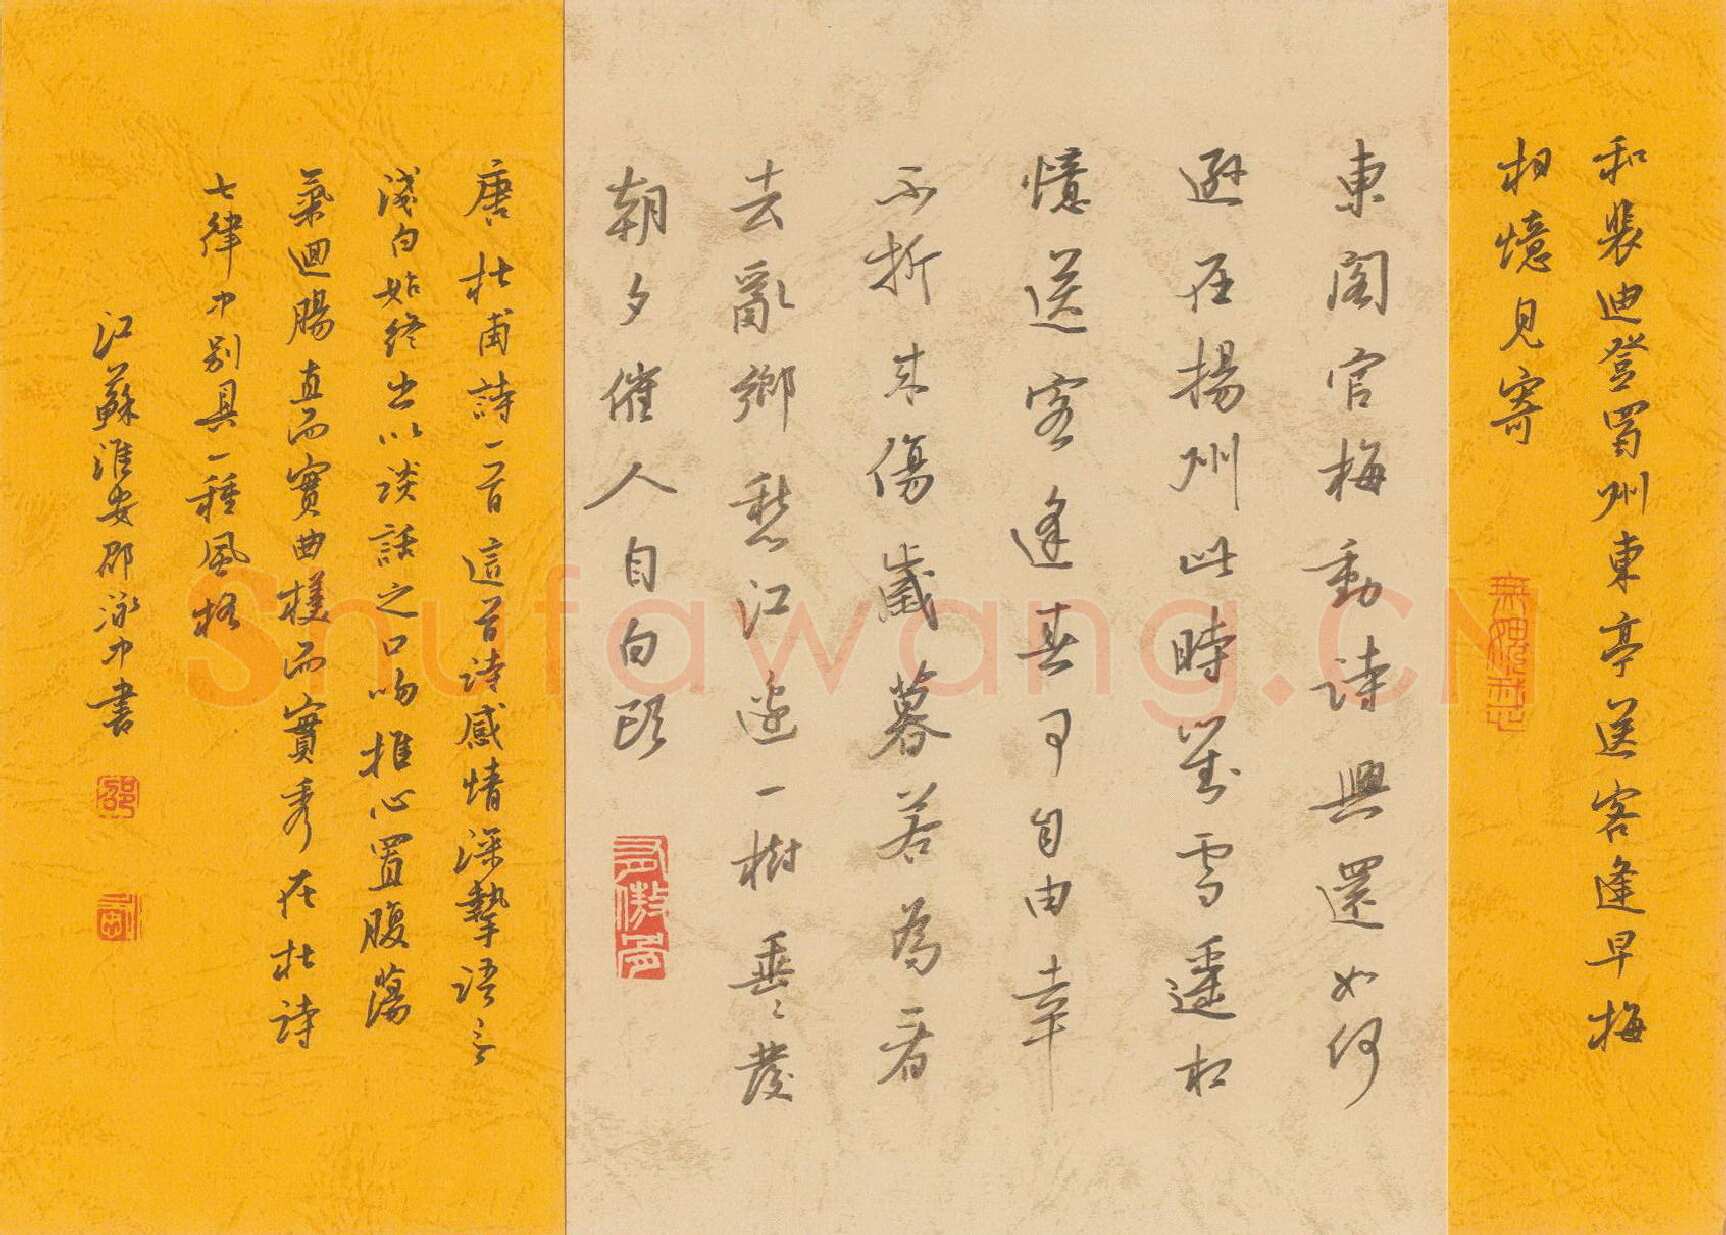 和裴迪登蜀州東亭送客逢早梅
相憶見寄
東閣官梅動詩興還如何
遜在揚州此時對雪遥相
憶送客逢春可自由幸
不折來傷歲暮若為看
去亂鄉愁江邊一樹垂垂發
朝夕催人自白頭
唐杜甫詩一首這首詩感情深摯語言
淺白始終出以談話之口吻推心置腹蕩
氣迴腸直而實曲樸而實秀在杜詩
七律中別具一種風格
江蘇淮安邵泳中書
邵
Shufawang.CN